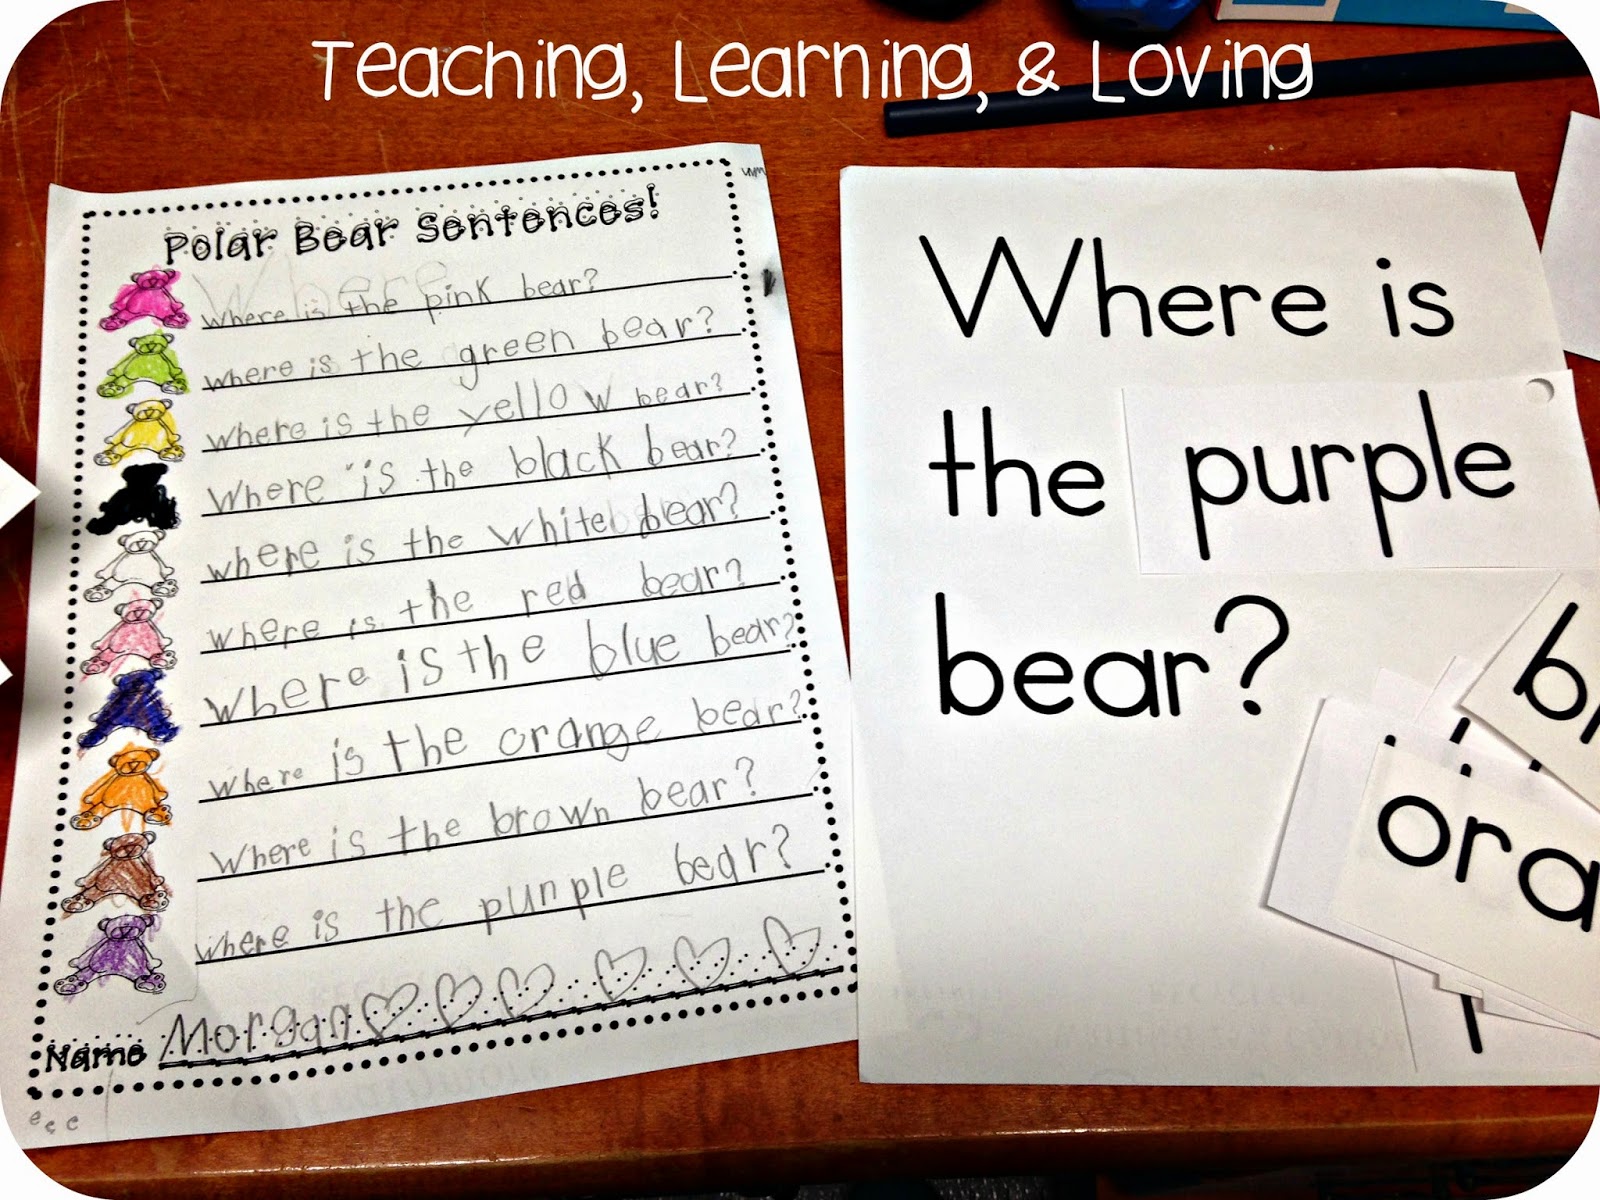 Teaching, Learning, & Loving
Polar Bear Sentences!
Where
Where is the pink bear?
Where is the green bear?
Where is the yellow bear?
Where is the black bear?
Where is the white bear?
Where is the red bear?
Where is the blue bear?
Where is the orange bear?
Where is the brown bear?
Where is the punple bear?
Name Morgan
e c c
Where is
the purple
bear?
ora